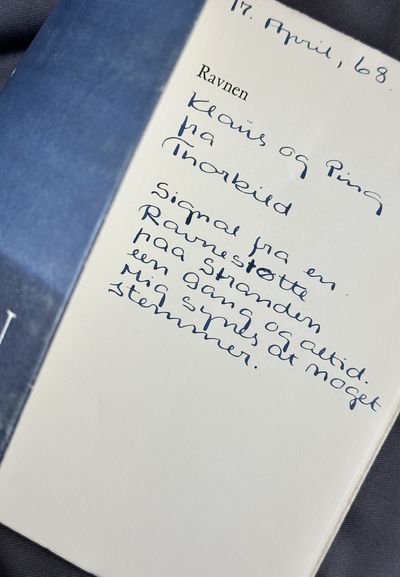 17. April, 68.
Ravnen
Klaus og Ping
fra
Thorkild
Signal fra en
Ravnestøtte
paa Stranden
een Gang og altid.
Mig synes at noget
stemmer.